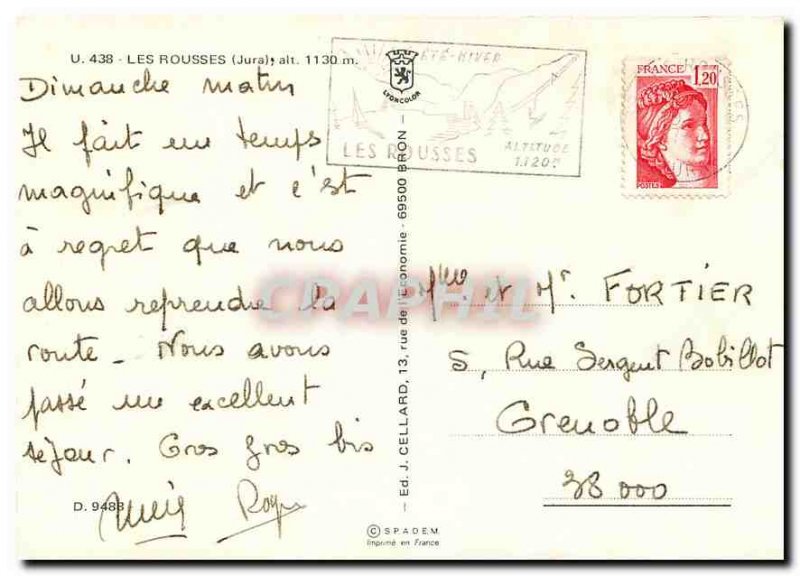 U. 438 - LES ROUSSES (Jura), alt. 1130 m.
Dimanche matin
Il fait un temps
magnifique et c'est
à regret que nous
allons reprendre la
route - Nous avons
passé un excellent
séjour. Gros gros bis
Roger
D. 9488
ÉTÉ-HIVER
LYONCOLOR
LES ROUSSES
ALTITUDE
1.120m
Ed. J. CELLARD, 13, rue de l'Economie - 69500 BRON -
FRANCE
1,20
POSTES
CPAPHIL
Mme et Mr. FORTIER
5, Rue Sergent Bobillot
Grenoble
38 000
© S.P.A.D.E.M.
Imprimé en France